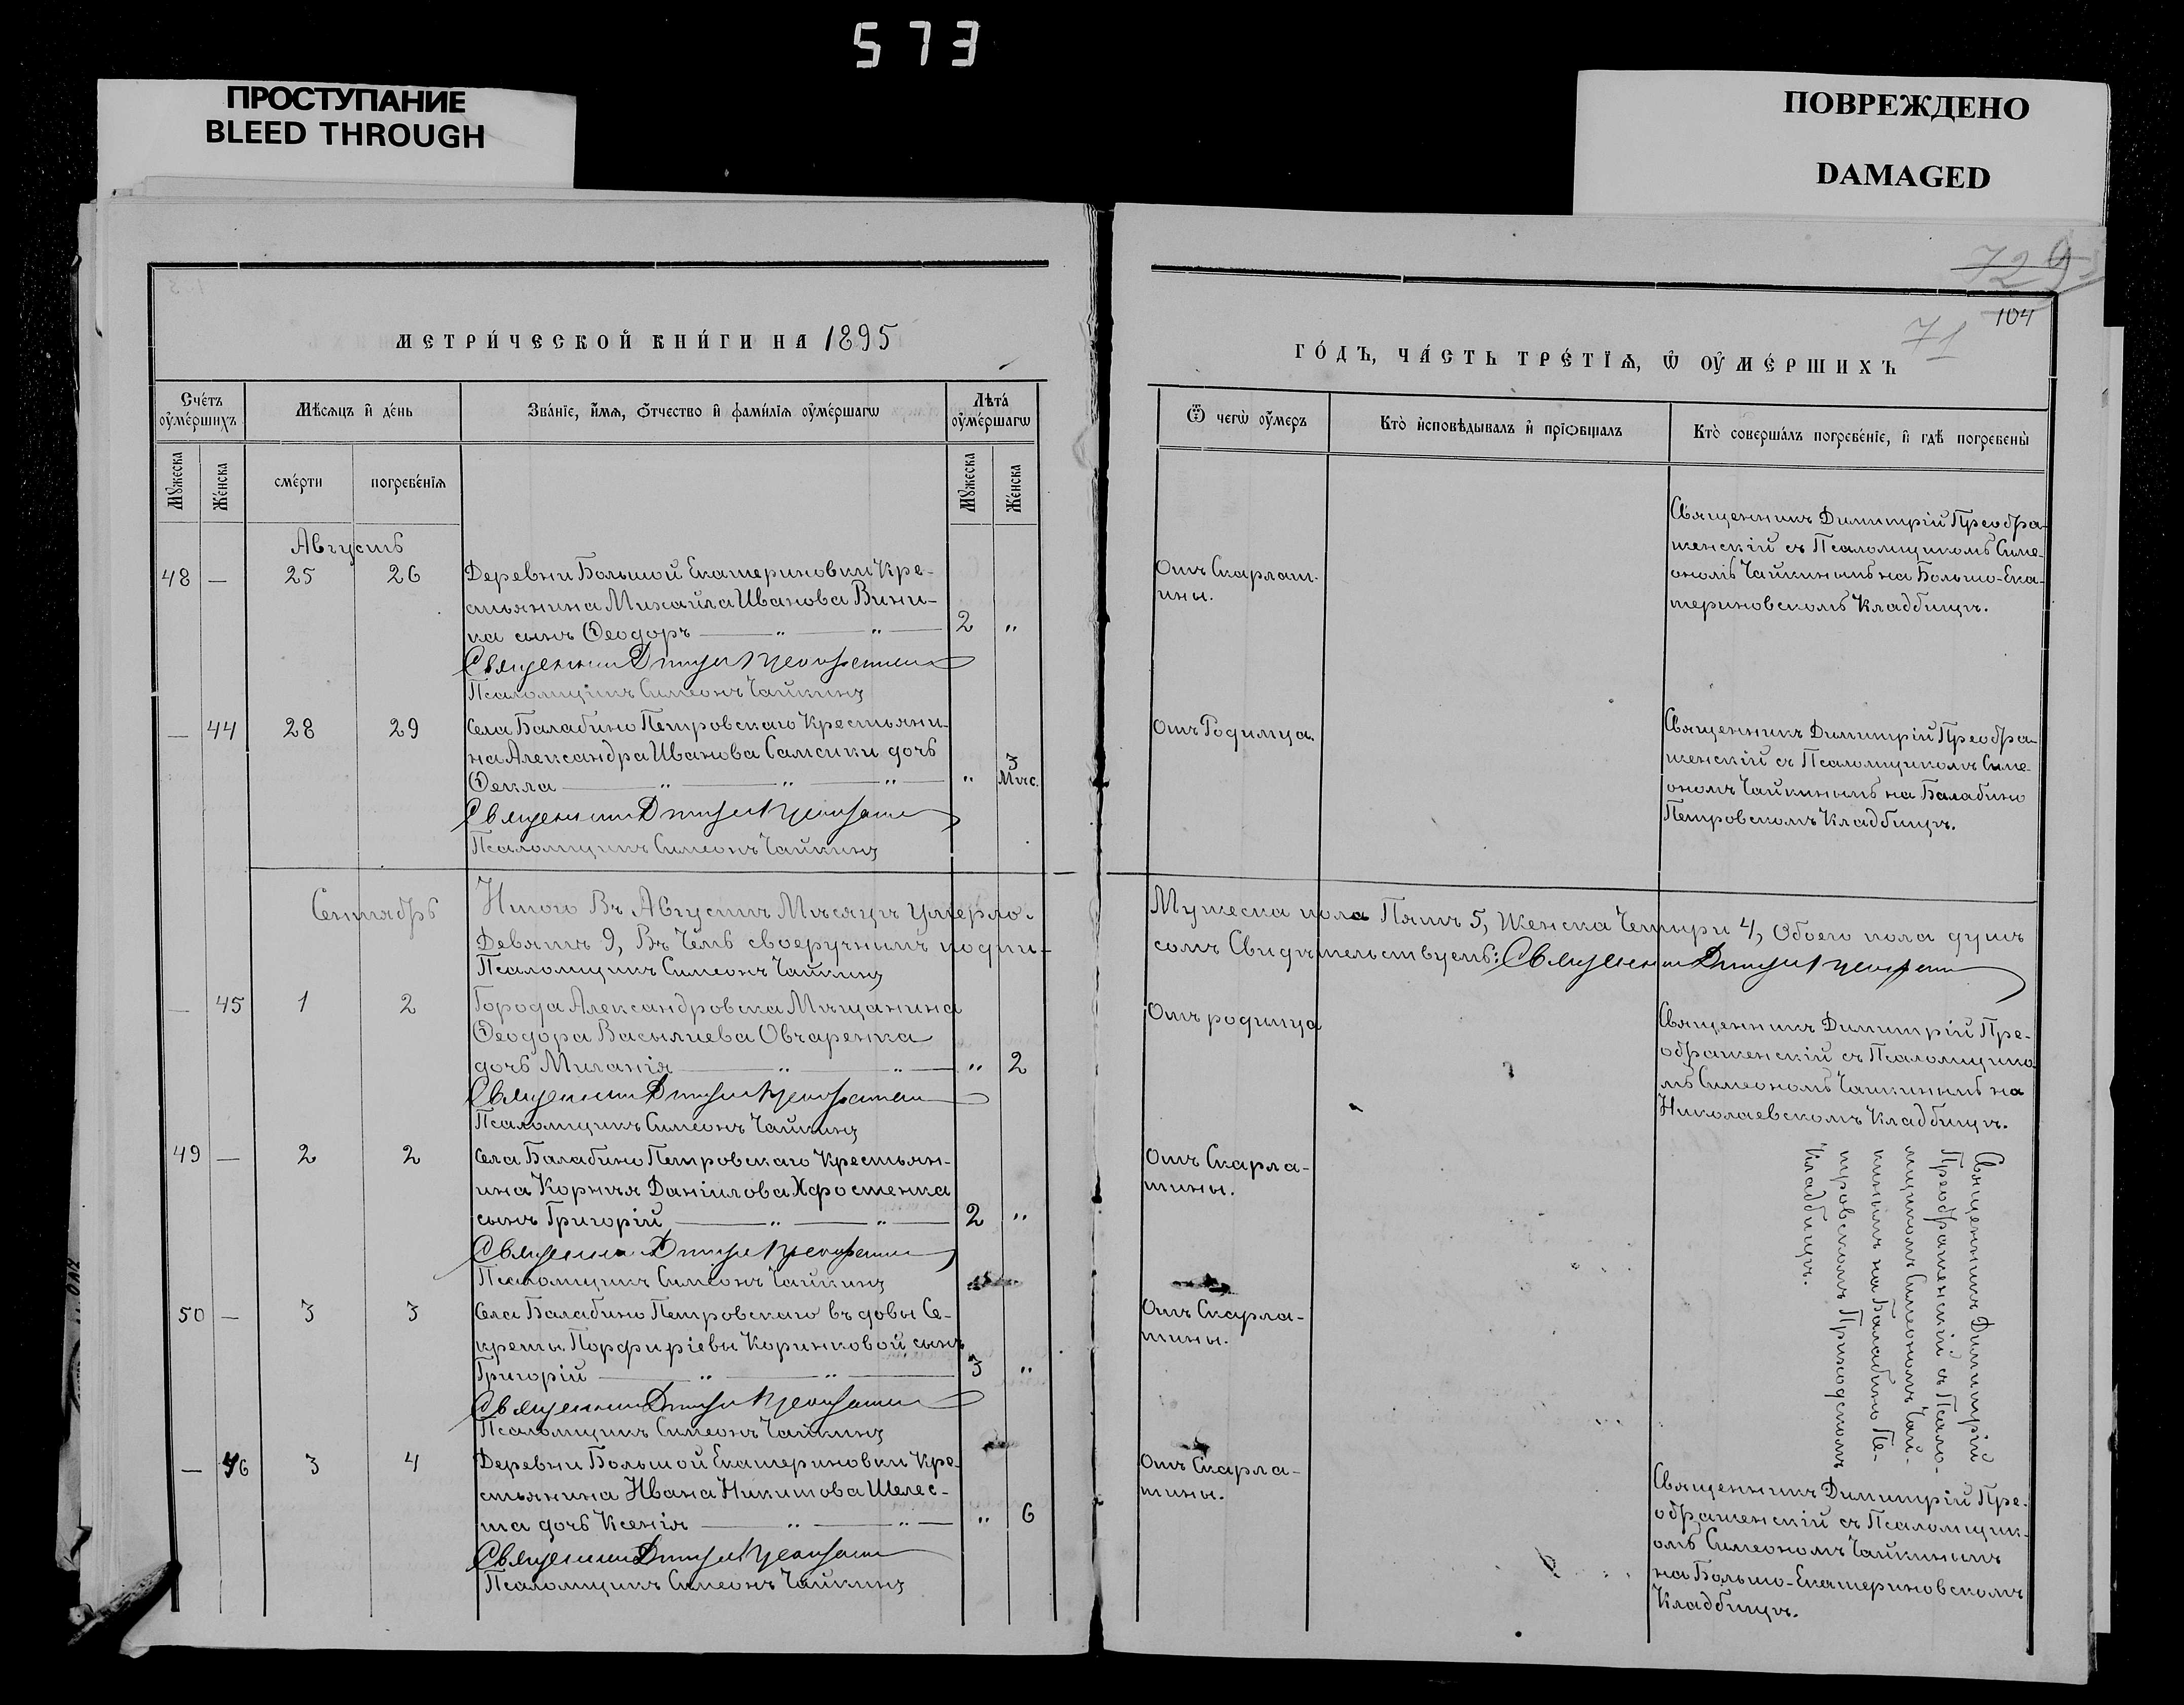 573
ПРОСТУПАНИЕ
BLEED THROUGH
ПОВРЕЖДЕНО
DAMAGED
729
104
71
МЕТРИ́ЧЕСКОЙ КНИ́ГИ НА 1895
ГО́ДЪ, ЧА́СТЬ ТРЕ́ТЇѦ, Ѡ҆ ОУ҆МЕ́РШИХЪ
Сче́тъ оу҆ме́ршихъ
Мѣ́сѧцъ и҆ де́нь
Зва́нїе, и҆́мѧ, ѻ҆́тчество и҆ фами́лїѧ оу҆ме́ршагѡ
Лѣта̀ оу҆ме́ршагѡ
Ѿ чегѡ̀ оу҆́меръ
Кто̀ и҆сповѣ́дывалъ и҆ прїѡбща́лъ
Кто̀ соверша́лъ погребе́нїе, и҆ гдѣ̀ погребены̀
Мꙋ́жеска
Же́нска
сме́рти
погребе́нїѧ
Мꙋ́жеска
Же́нска
Августъ
48 — 25 26 Деревни Большой Екатериновки Кре-
стьянина Михаила Иванова Вини-
ка сынъ Ѳеодоръ — „ — „ — 2 „
Священникъ Димитрій Преображенскій
Псаломщикъ Симеонъ Чайкинъ
Отъ Скарлат-
ины.
Священникъ Димитрій Преобра-
женскій съ Псаломщикомъ Симе-
ономъ Чайкинымъ на Больше-Ека-
териновскомъ Кладбищѣ.
— 44 28 29 Села Балабино Петровскаго Крестьяни-
на Александра Иванова Самсики дочь
Ѳекла — „ — „ — „ 3 Мѣс.
Священникъ Димитрій Преображенскій
Псаломщикъ Симеонъ Чайкинъ
Отъ Родимца.
Священникъ Димитрій Преобра-
женскій съ Псаломщикомъ Симе-
ономъ Чайкинымъ на Балабино
Петровскомъ Кладбищѣ.
Сентябрь
Итого Въ Августѣ Мѣсяцѣ Умерло. Мужеска пола Пять 5, Женска Четыри 4, Обоего пола душъ
Девять 9, Въ Чемъ своеручнымъ подпи- сомъ Свидѣтельствуемъ: Священникъ Димитрій Преображенскій
Псаломщикъ Симеонъ Чайкинъ
— 45 1 2 Города Александровска Мѣщанина
Ѳеодора Васылиева Овчаренка
дочь Миланія — „ — „ — „ 2
Священникъ Димитрій Преображенскій
Псаломщикъ Симеонъ Чайкинъ
Отъ родимца
Священникъ Димитрій Пре-
ображенскій съ Псаломщико
мъ Симеономъ Чайкинымъ на
Николаевскомъ Кладбищѣ.
49 — 2 2 Села Балабино Петровскаго Крестьян-
ина Корнѣя Даніилова Хфостенка
сынъ Григорій — „ — „ — 2 „
Священникъ Димитрій Преображенскій
Псаломщикъ Симеонъ Чайкинъ
Отъ Скарла-
тины.
Священникъ Димитрій
Преображенскій съ Псало-
мщикомъ Симеономъ Чай-
кинымъ на Балабино Пе-
тровскомъ Приходскомъ
Кладбищѣ.
50 — 3 3 Села Балабино Петровскаго вдовы Се-
креты Порфиріевы Коринковой сынъ
Григорій — „ — „ — 3 „
Священникъ Димитрій Преображенскій
Псаломщикъ Симеонъ Чайкинъ
Отъ Скарла-
тины.
— 46 3 4 Деревни Большой Екатериновки Кре-
стьянина Ивана Никитова Шелес-
та дочь Ксенія — „ — „ — „ 6
Священникъ Димитрій Преображенскій
Псаломщикъ Симеонъ Чайкинъ
Отъ Скарла-
тины.
Священникъ Димитрій Пре-
ображенскій съ Псаломщик-
омъ Симеономъ Чайкинымъ
на Больше-Екатериновскомъ
Кладбищѣ.